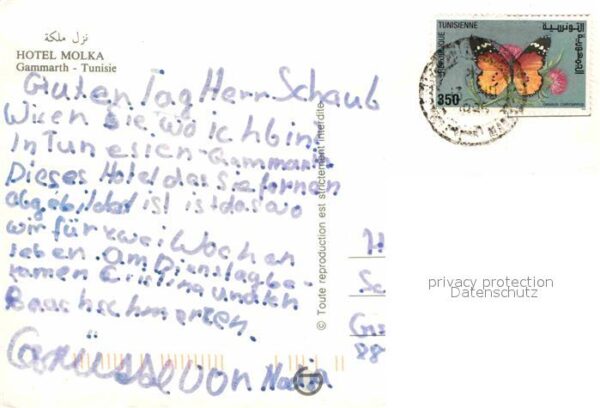 نزل ملكة
HOTEL MOLKA
Gammarth - Tunisie
Guten Tag Herr Schaub
Wisen Sie wo ich bin
In Tunesien-Gammarth
Dieses Hotel das Sie fornen
abgebildet ist ist das wo
wir für zwei Wochen
leben. Am Dienstag be-
kamen Cristina und ich
Bauchschmerzen.
Grüsse von
© Toute reproduction est strictement interdite
REPUBLIQUE TUNISIENNE
350
الجمهورية التونسية
H
Sc
88
privacy protection
Datenschutz